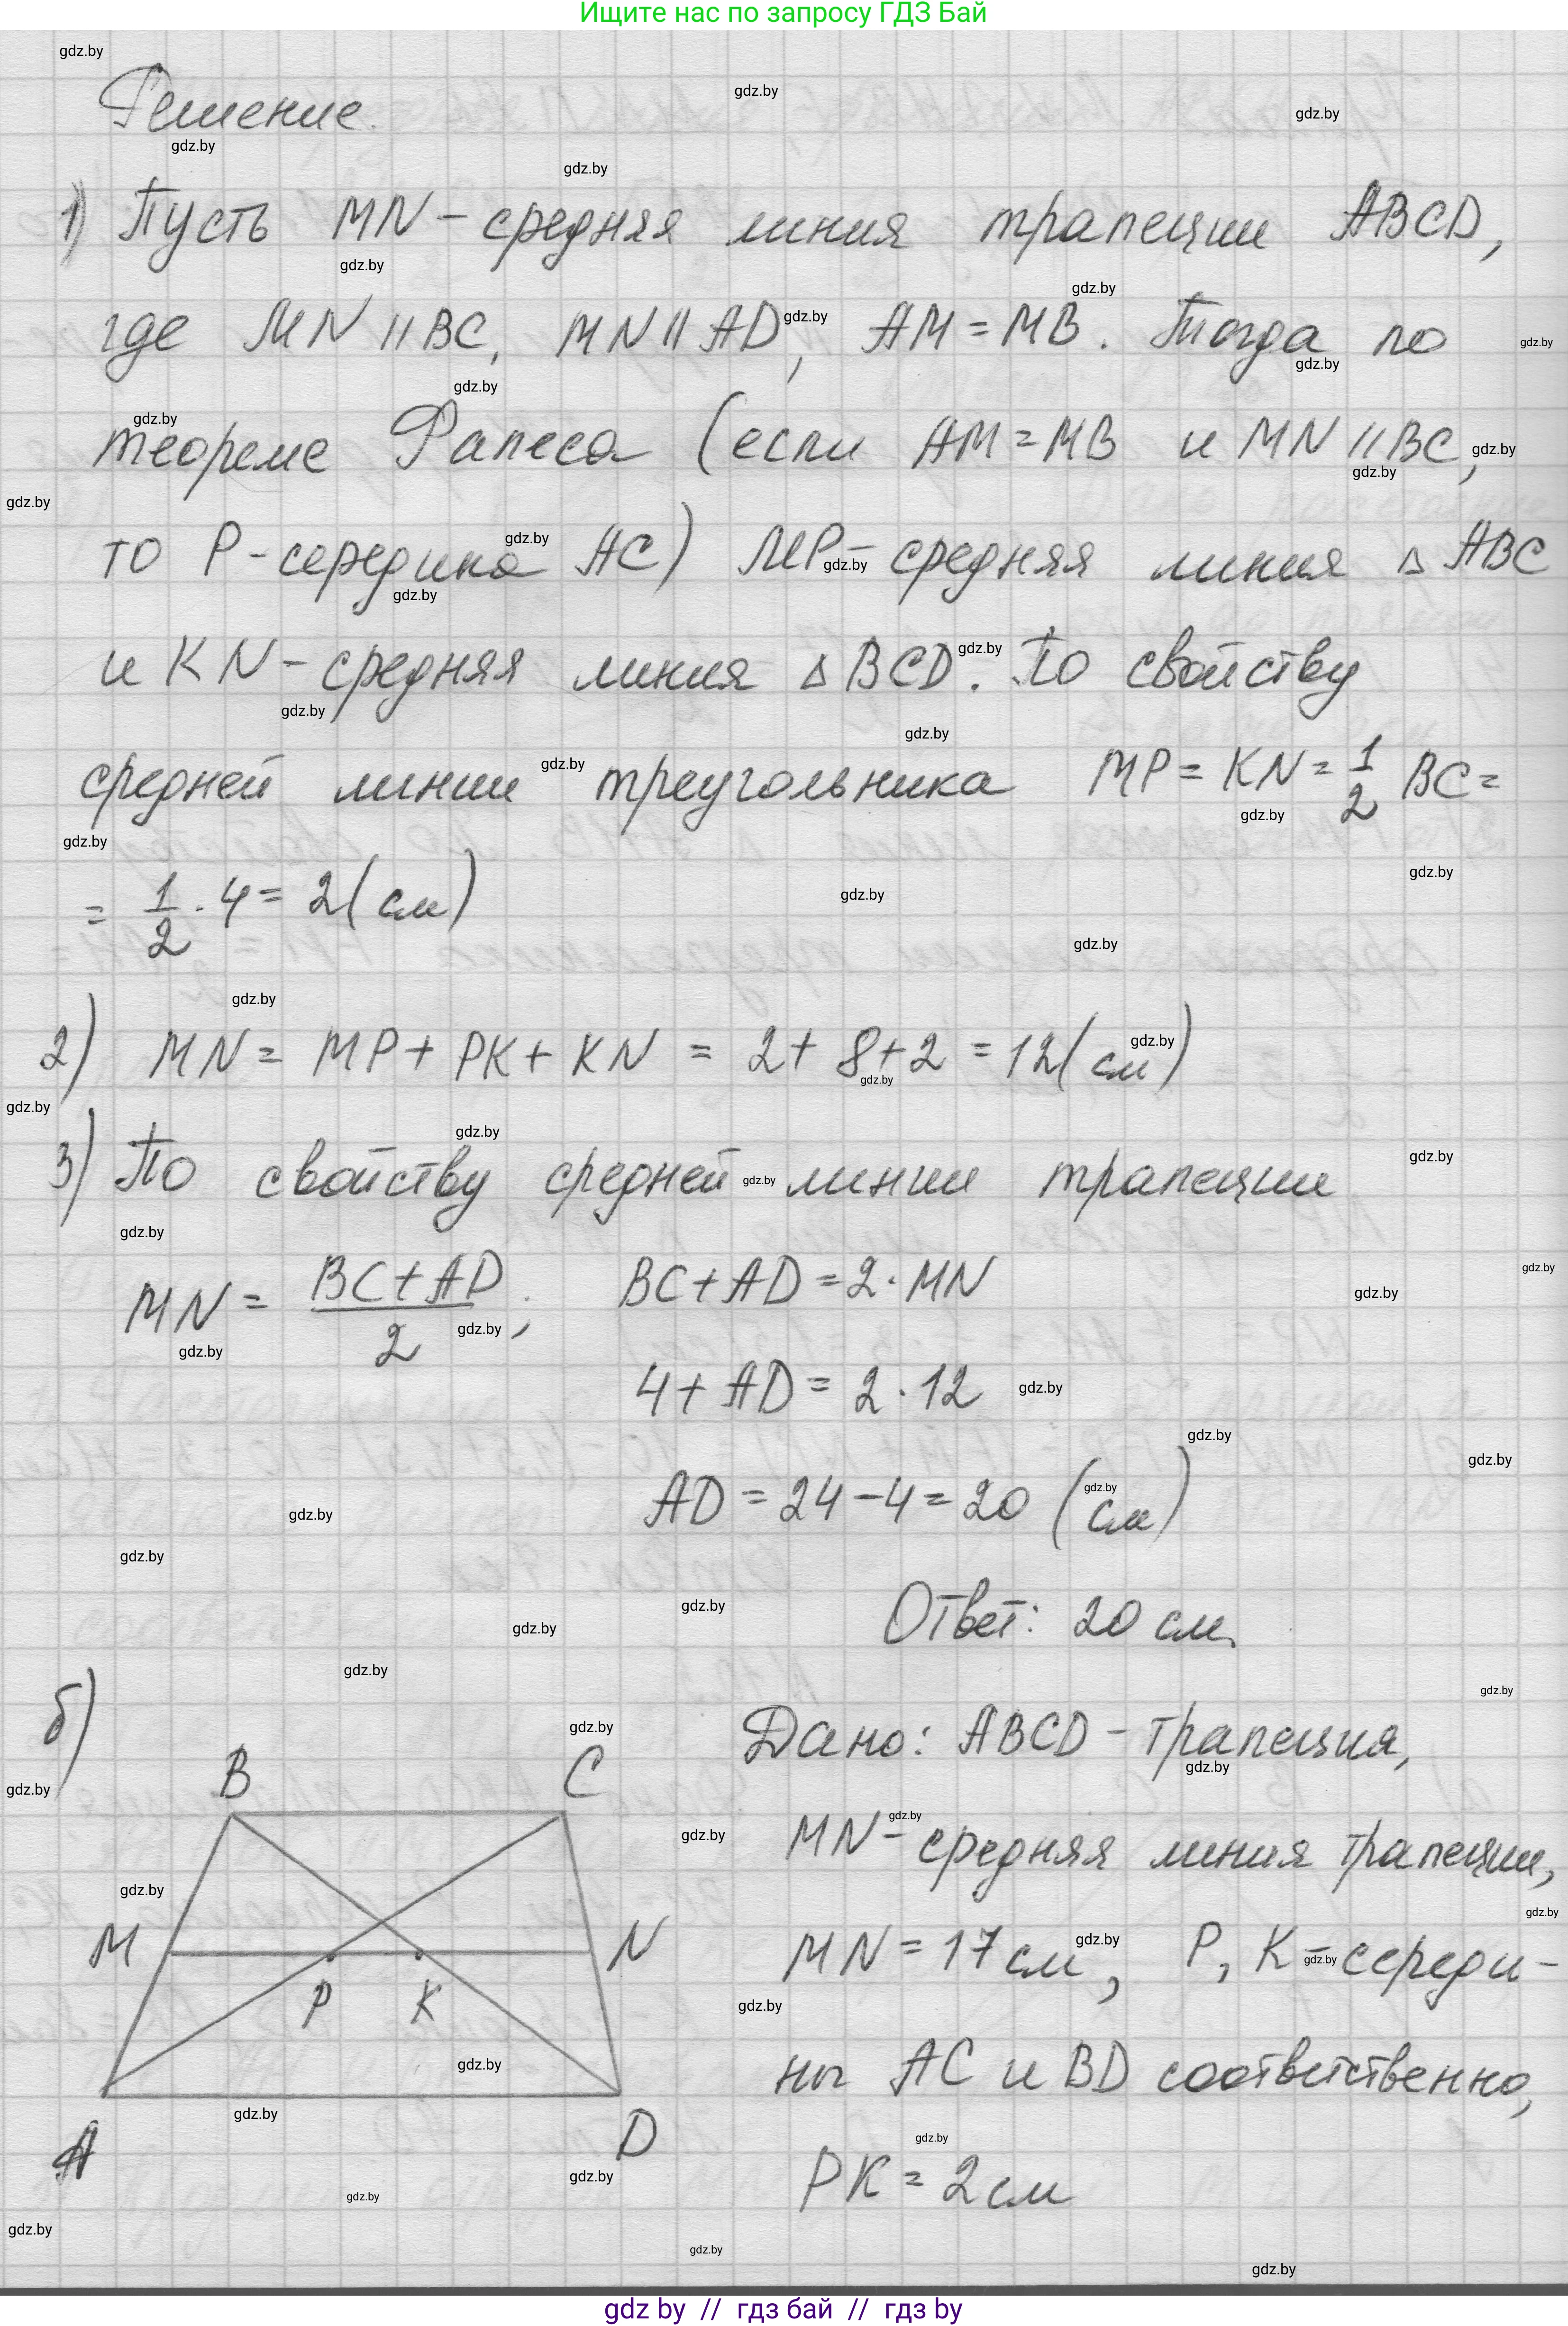 Ищите нас по запросу ГДЗ Бай
Решение.
1) Пусть MN – средняя линия трапеции ABCD,
где MN || BC, MN || AD, AM = MB. Тогда по
теореме Фалеса (если AM = MB и MN || BC,
то P - середина AC) MP – средняя линия △ ABC
и KN – средняя линия △ BCD. По свойству
средней линии треугольника MP = KN = 1/2 BC =
= 1/2 · 4 = 2 (см)
2) MN = MP + PK + KN = 2 + 8 + 2 = 12 (см)
3) По свойству средней линии трапеции
MN = (BC + AD)/2; BC + AD = 2 · MN
4 + AD = 2 · 12
AD = 24 – 4 = 20 (см)
Ответ: 20 см.
б)
B C
M N
P K
A D
Дано: ABCD – трапеция,
MN – средняя линия трапеции,
MN = 17 см, P, K – середи-
ны AC и BD соответственно,
PK = 2 см
gdz by // гдз бай // гдз by